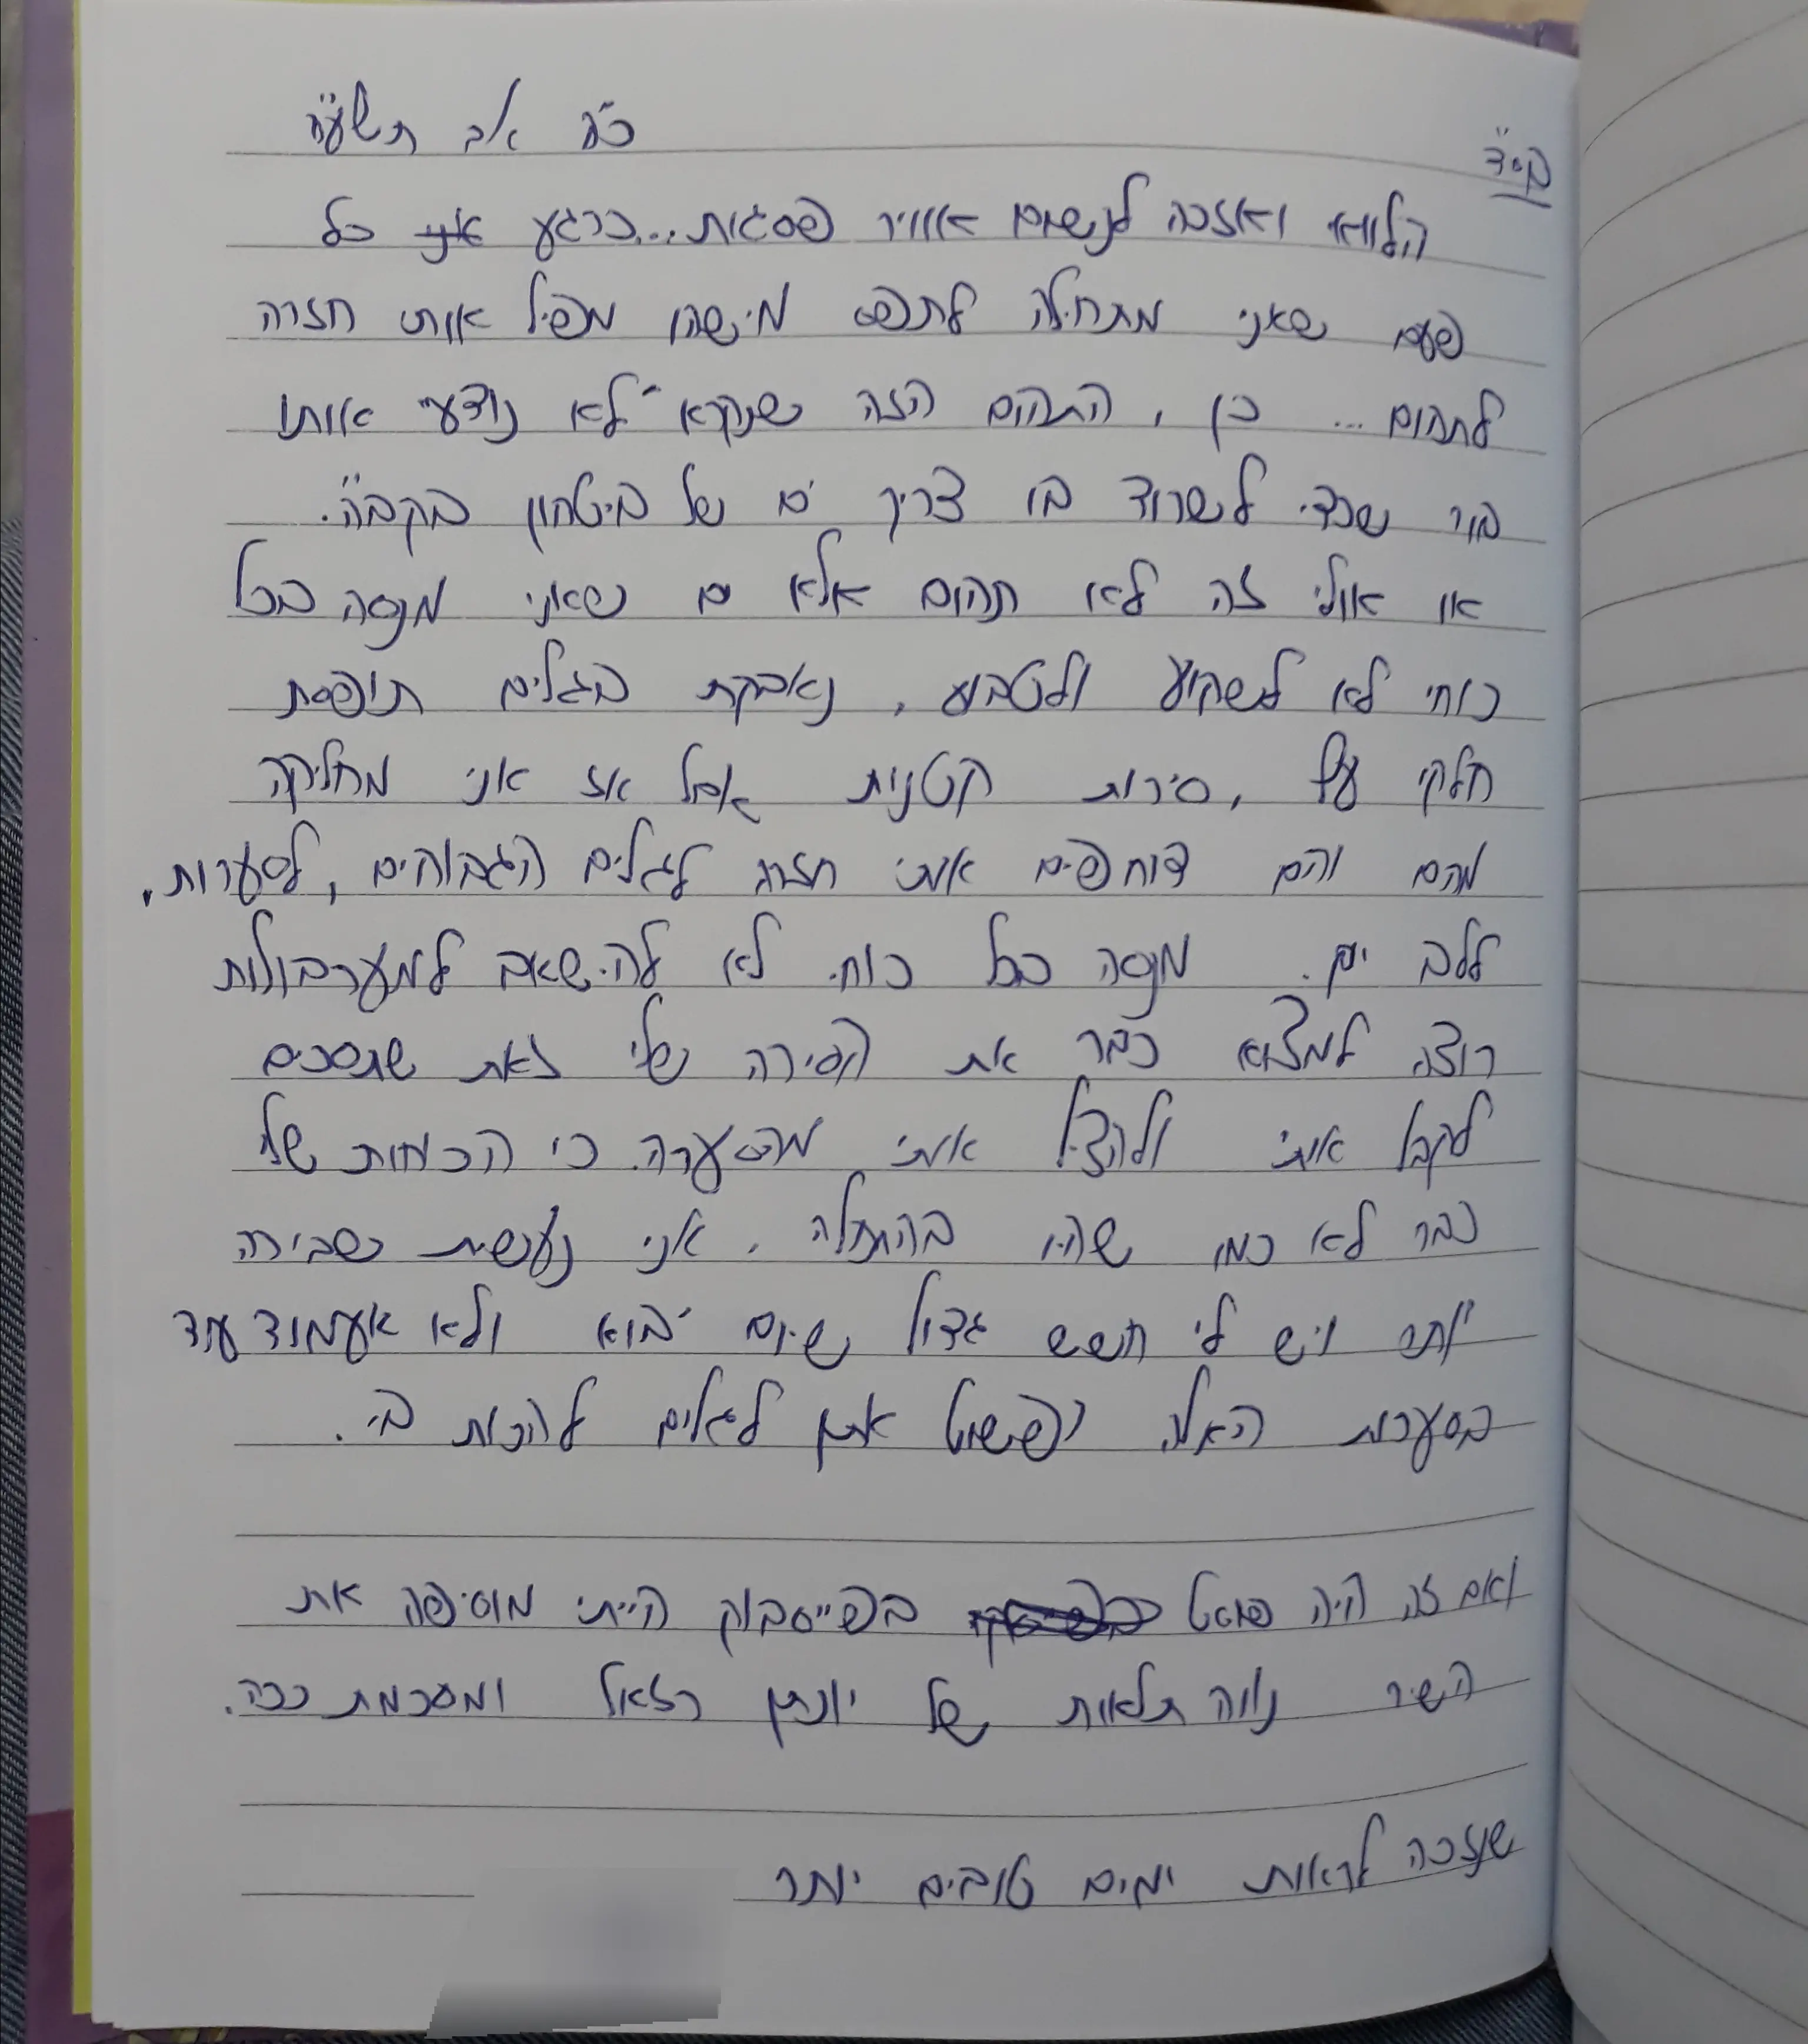 בס״ד
כ״ח אב תשע״ח
הלוואי ואזכה לנשום אוויר פסגות... כרגע אני כל
פעם שאני מתחילה לתפס מישהו מפיל אותי חזרה
לתהום... כן, התהום הזה שנקרא "לא נודע" אותו
בור שכדי לשרוד בו צריך ים של ביטחון בקב״ה.
או אולי זה לא תהום אלא ים שאני מנסה בכל
כוחי לא לשקוע ולטבוע, נאבקת בגלים תופסת
חלקי עץ, סירות קטנות אבל אז אני מחליקה
מהם והם דוחפים אותי חזרה לגלים הגבוהים, לסערות,
ללב ים. מנסה בכל כוחי לא להישאב למערבולות
רוצה למצוא כבר את הסירה שלי זאת שתסכים
לקבל אותי ולהציל אותי מהסערה. כי הכוחות שלי
כבר לא כמו שהיו בהתחלה. אני נעשית שבירה
יותר ויש לי חשש גדול שיום יבוא ולא אעמוד עוד
בסערות האלה ופשוט אתן לגלים להכות בי.
ואם זה היה פוסט בפייסבוק הייתי מוסיפה את
השיר נווה תלאות של יונתן רזאל ומסכמת ככה.
שנזכה לראות ימים טובים יותר